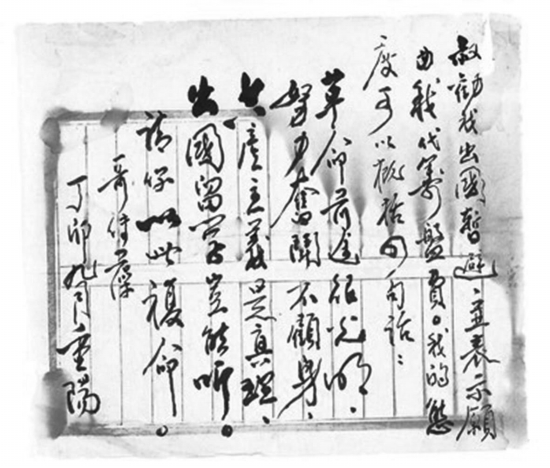 叔勸我出國暫避，並表示願
由我代筹盤費。我的態
度可以概括句話：
革命前途光明、
努力奮鬭不顧身、
共產主義是真理、
出國留学豈能听。
請你以此複命。
哥付
丁卯九月重陽